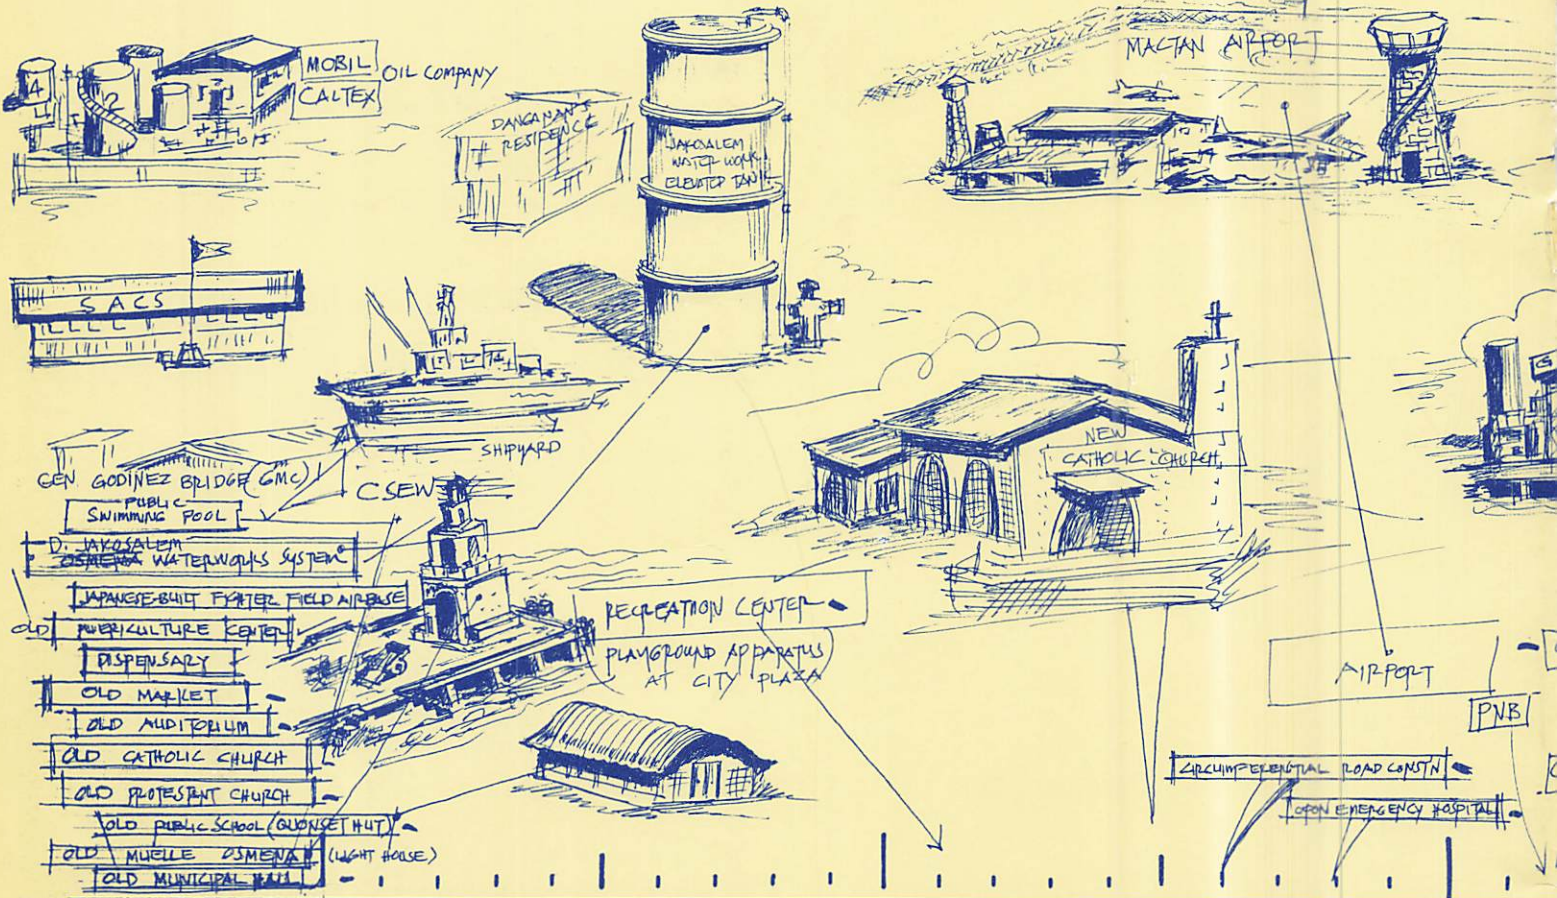 4
2
MOBIL
CALTEX
OIL COMPANY
DANGANAN'S
RESIDENCE
JAKOSALEM
WATER WORK
ELEVATED TANK
MACTAN AIRPORT
SACS
SHIPYARD
GEN. GODINEZ BRIDGE (GMC)
CSEW
PUBLIC
SWIMMING POOL
D. JAKOSALEM
OSMEÑA WATERWORKS SYSTEM
JAPANESE-BUILT FIGHTER FIELD AIRBASE
OLD PUERICULTURE CENTER
DISPENSARY
OLD MARKET
OLD AUDITORIUM
OLD CATHOLIC CHURCH
OLD PROTESTENT CHURCH
OLD PUBLIC SCHOOL (QUONSET HUT)
OLD MUELLE OSMEÑA (LIGHT HOUSE)
OLD MUNICIPAL HALL
RECREATION CENTER
PLAYGROUND APPARATUS
AT CITY PLAZA
NEW
CATHOLIC CHURCH
AIRPORT
PNB
CIRCUMFERENTIAL ROAD CONST'N
OPON EMERGENCY HOSPITAL